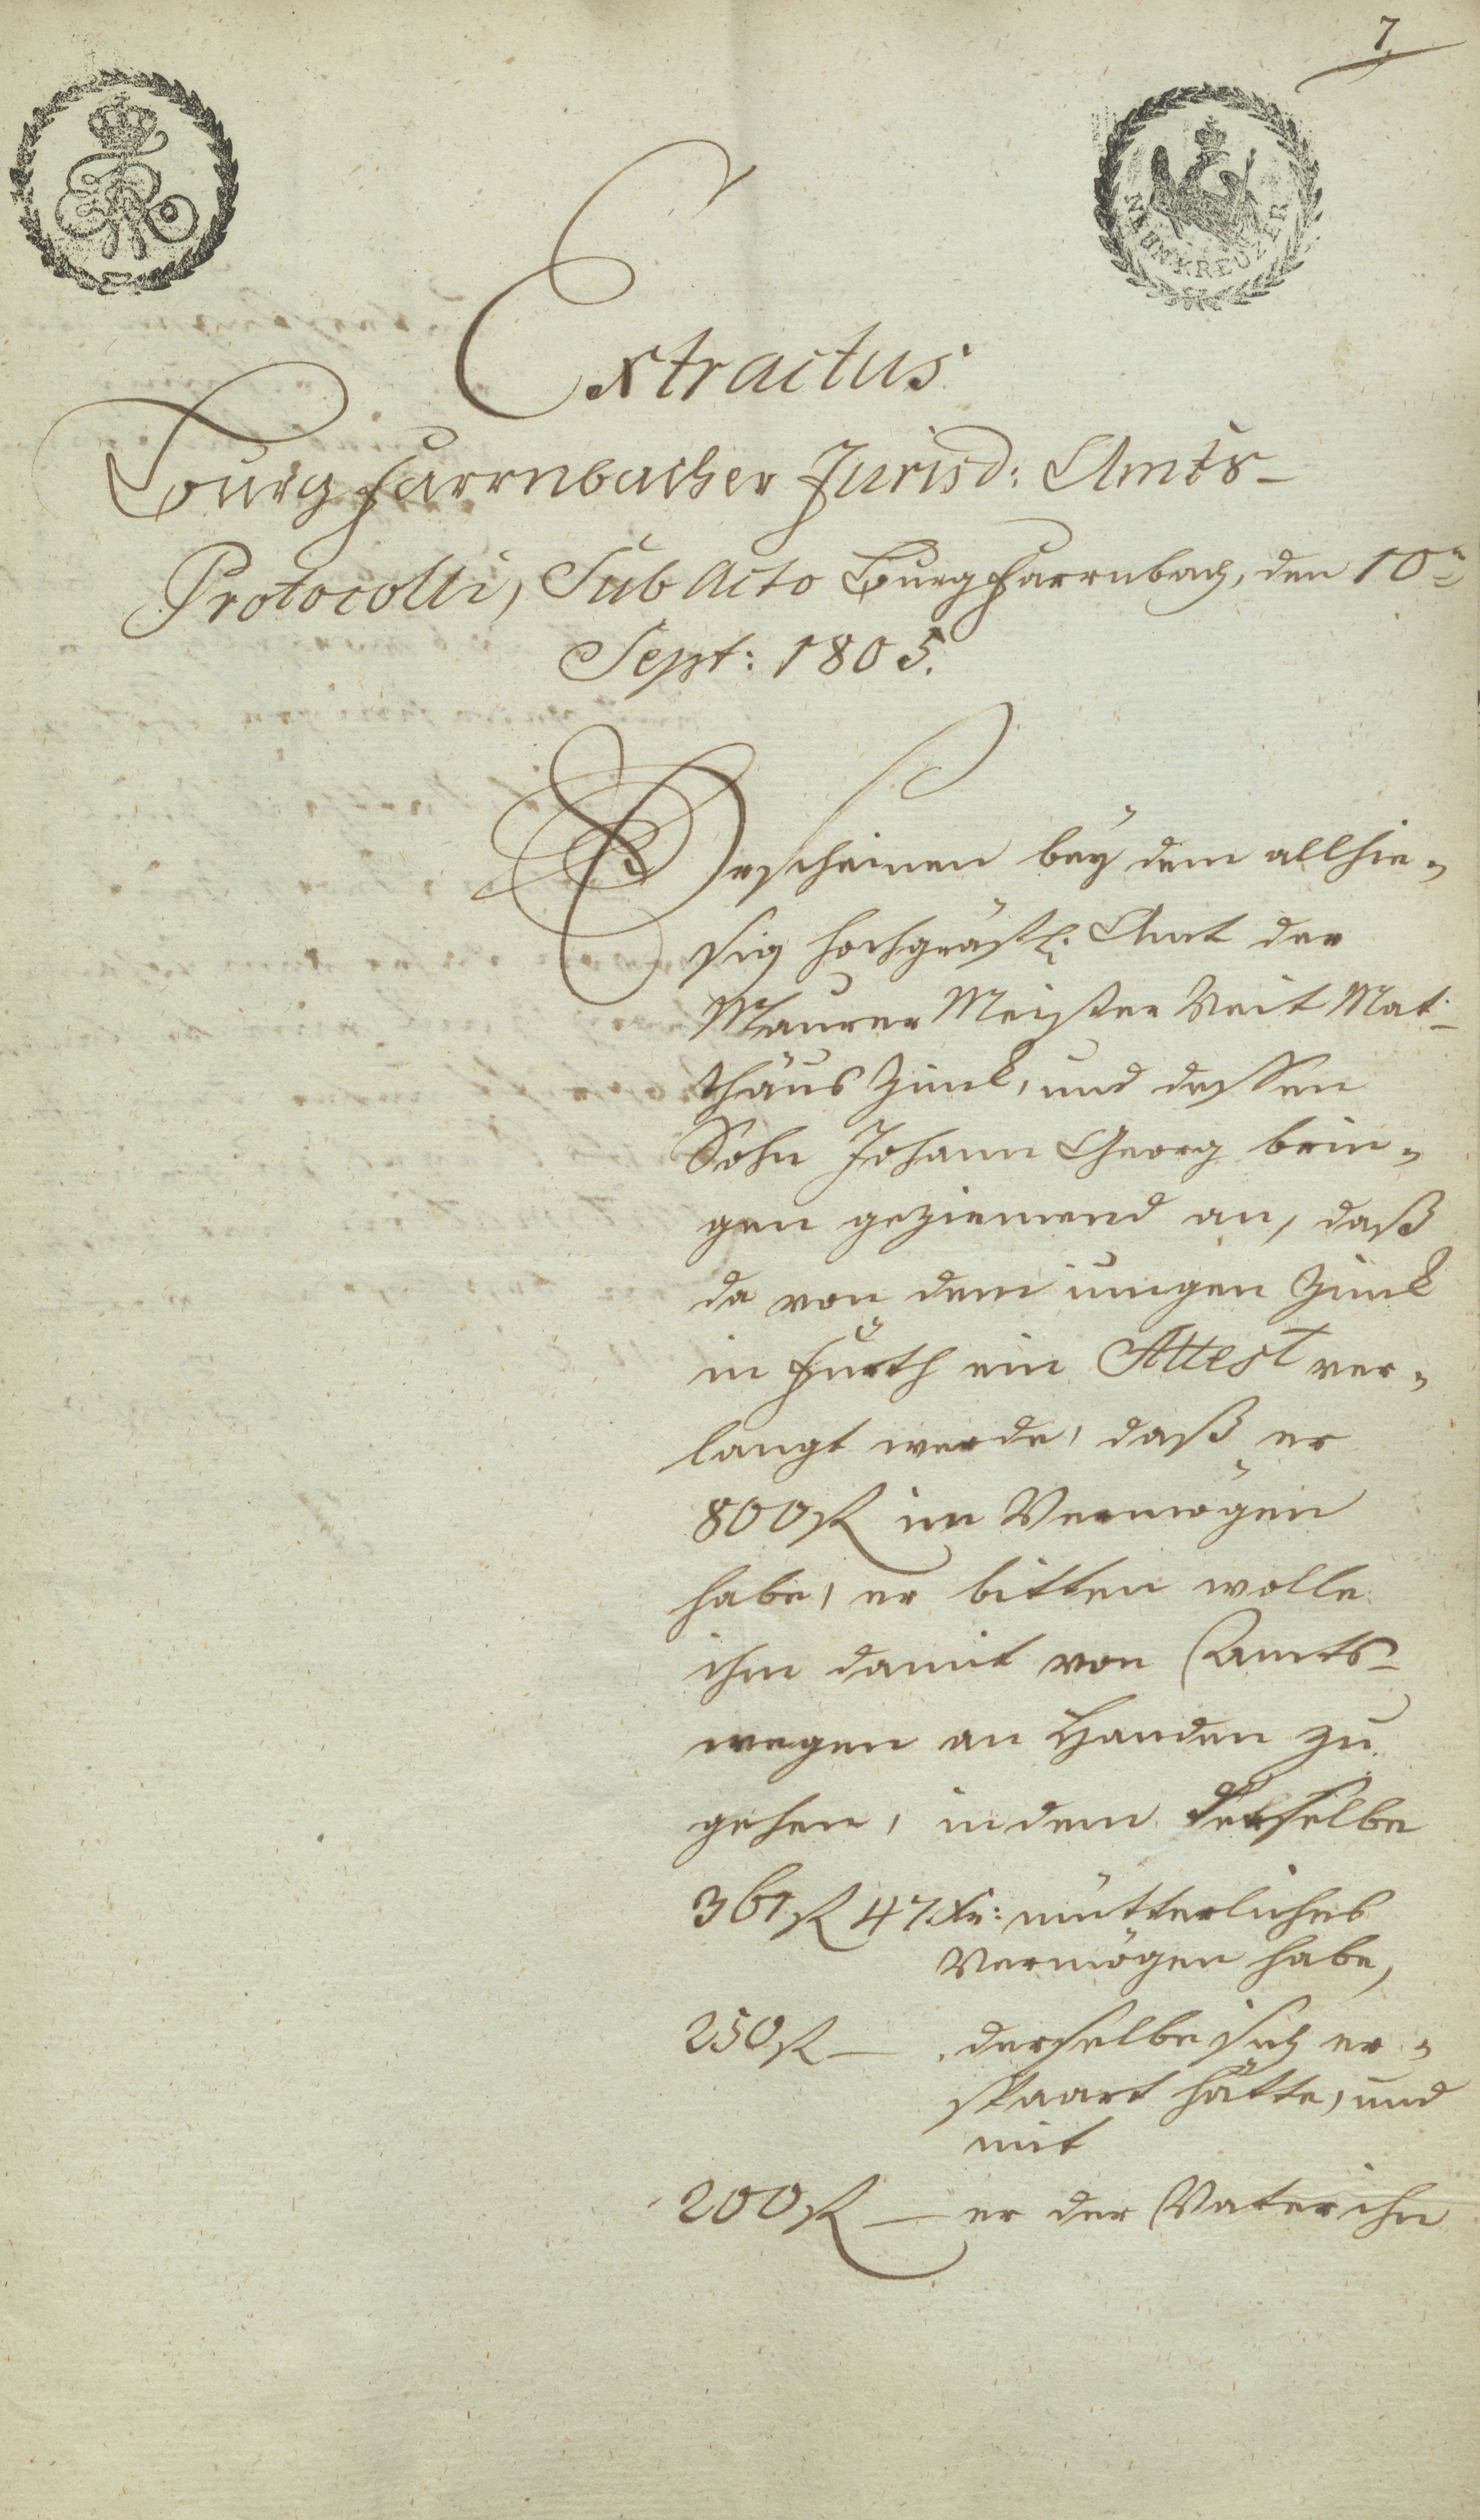 7.
NEUNKREUZER
Extractus
Burgfarrnbacher Jurisd: Amts-
Protocolli, Sub Acto Burgfarrnbach, den 10n
Sept: 1805.
Erscheinen bey dem allhie-
sig hochgräfl. Amt der
Maurer Meister Veit Mat-
thäus Zink, und dessen
Sohn Johann Georg brin-
gen geziemend an, daß
da von dem iungen Zink
in Fürth ein Attest ver-
langt werde, daß er
800 fl im Vermögen
habe, er bitten wolle
ihm damit von Amts-
wegen an Handen zu
gehen, indem derselbe
361 fl 47 Xr: mütterliches
Vermögen habe,
250 fl — derselbe sich er-
spaart hätte, und
mit
200 fl — er der Vater ihn